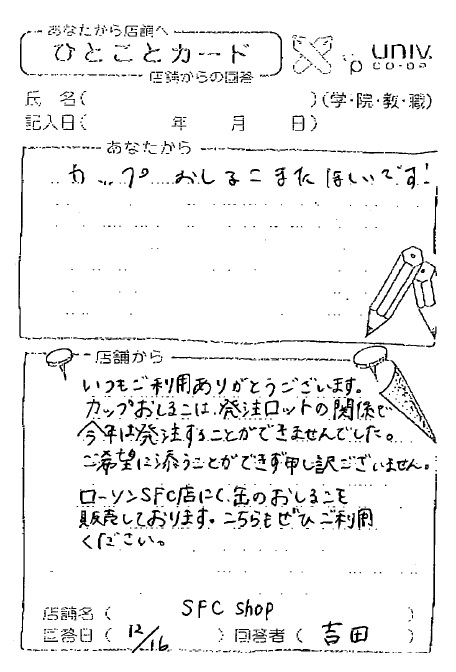 あなたから店舗へ
ひとことカード
店舗からの回答
univ.
co-op
氏 名( )(学・院・教・職)
記入日( 年 月 日)
あなたから
カップ おしるこまた ほしいです!
店舗から
いつもご利用ありがとうございます。
カップおしるこは、発注ロットの関係で
今年は発注することができませんでした。
ご希望に添うことができず申し訳ございません。
ローソンSFC店にて、缶のおしるこを
販売しております。こちらもぜひご利用
ください。
店舗名( SFC shop )
回答日( 12/16 ) 回答者( 吉田 )